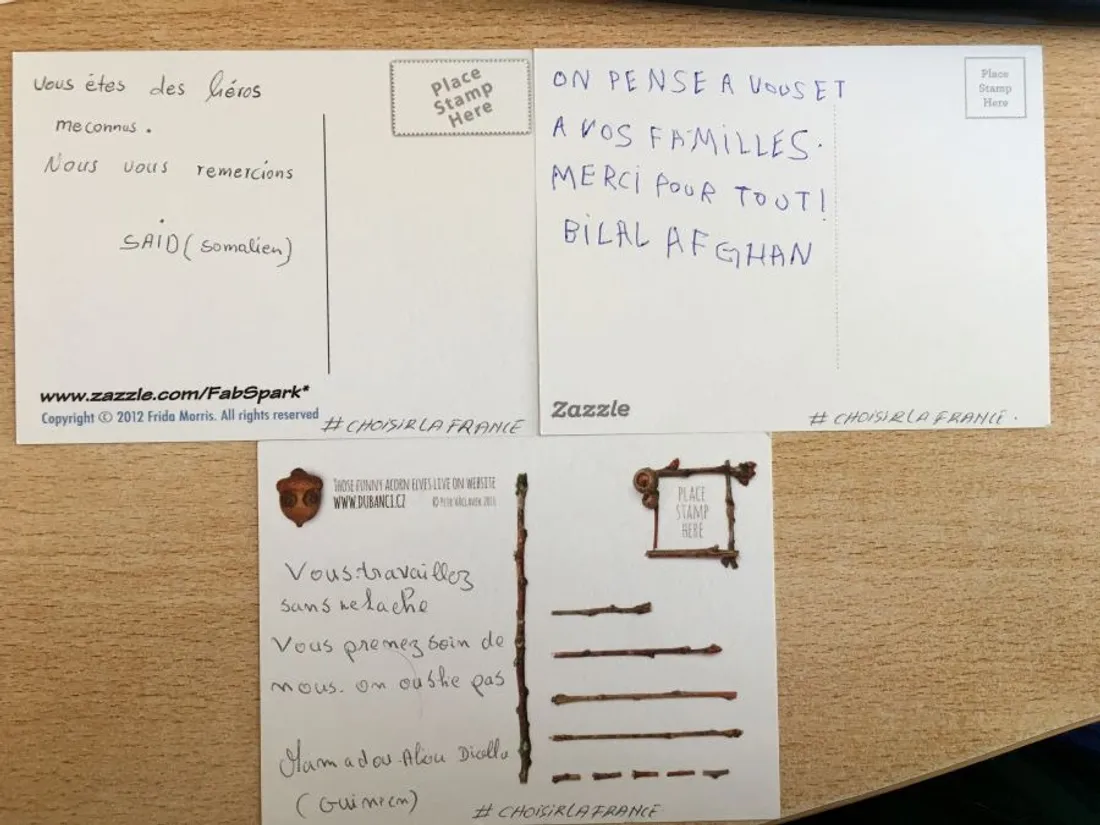 Vous êtes des héros
meconnus.
Nous vous remercions
SAID (somalien)
Place
Stamp
Here
www.zazzle.com/FabSpark*
Copyright © 2012 Frida Morris. All rights reserved
#CHOISIRLAFRANCE
ON PENSE A VOUS ET
A VOS FAMILLES.
MERCI POUR TOUT!
BILAL AFGHAN
Place
Stamp
Here
Zazzle
#CHOISIRLAFRANCE.
THOSE FUNNY ACORN ELVES LIVE ON WEBSITE
WWW.DUBANCI.CZ © PETR VÁCLAVEK
PLACE
STAMP
HERE
Vous travaillez
sans relache
Vous prenez soin de
nous. on oublie pas
Mamadou Aliou Diallo
(Guinéen)
#CHOISIRLAFRANCE